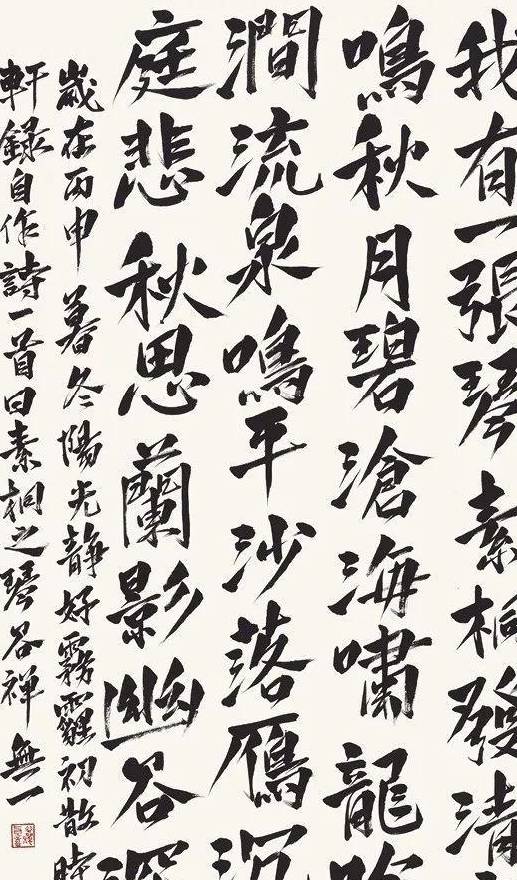 我有一張琴素桐發清
鳴秋月碧滄海嘯龍吟
澗流泉鳴平沙落雁沉
庭悲秋思蘭影幽谷深
歲在丙申暮冬陽光靜好霧霾初散時
軒錄自作詩一首曰素桐之琴谷禪無一